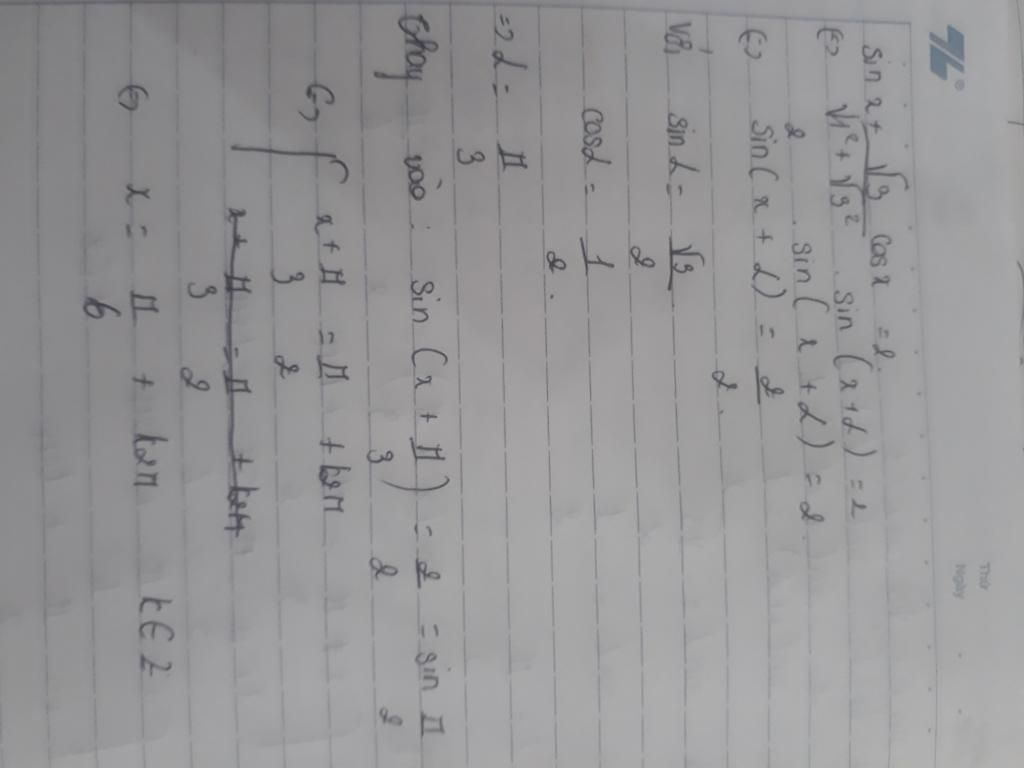 Thứ
Ngày
sin x + √3 cos x = 2.
⇔ √1² + √3² . sin (x + α) = 2
2 sin (x + α) = 2
⇔ sin (x + α) = 2/2.
Với sin α = √3/2
cos α = 1/2.
=> α = π/3
thay vào: sin (x + π/3) = 2/2 = sin π/2
⇔ [ x + π/3 = π/2 + k2π
x + π/3 = π/2 + k2π
⇔ x = π/6 + k2π k ∈ Z